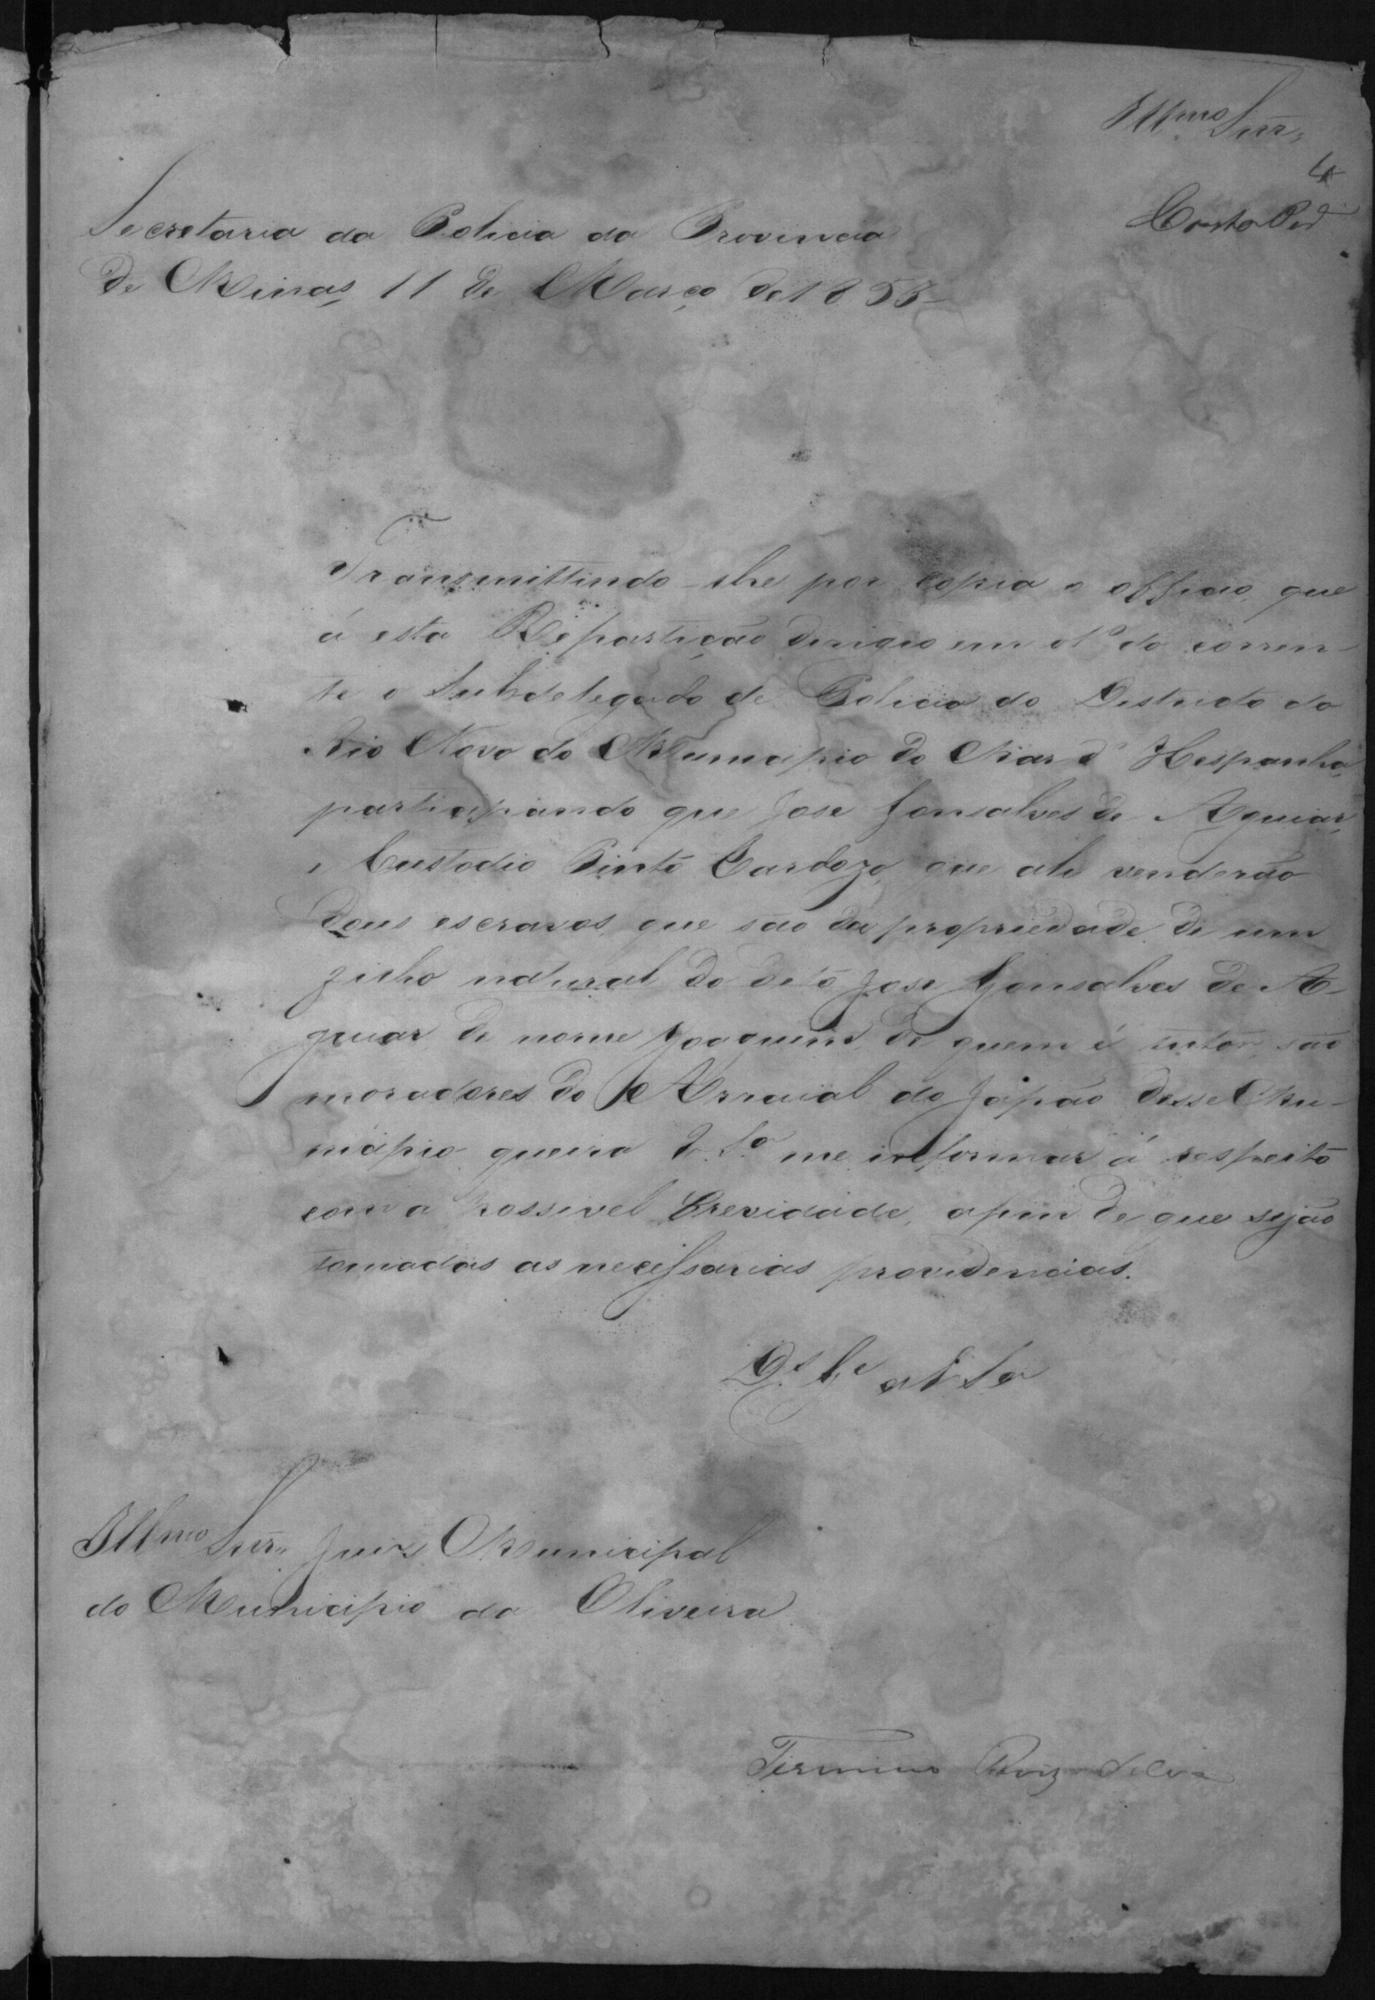 Illmo Snr.
4
Secretaria da Policia da Provincia
de Minas, 11 de Março de 1853
Transmittindo-lhe por copia o officio, que
á esta Repartição dirigio em do corren-
te o Subdelegado de Policia do Districto do
Rio Novo do Municipio do Mar d'Hespanha,
participando que Jose Gonsalves de Aguiar,
e Custodio Pinto Cardozo, que ahi venderão
dous escravos, que são da propriedade de um
filho natural do dito Jose Gonsalves de A-
guiar de nome Joaquim, de quem é tutor, são
moradores do Arraial do Japão desse Mu-
nicipio, queira V. Sa. me informar á respeito
com a possivel brevidade, afim de que sejão
tomadas as necessarias providencias.
Ds. Ge. a V. Sa.
Illmo Snr. Juiz Municipal
do Municipio da Oliveira